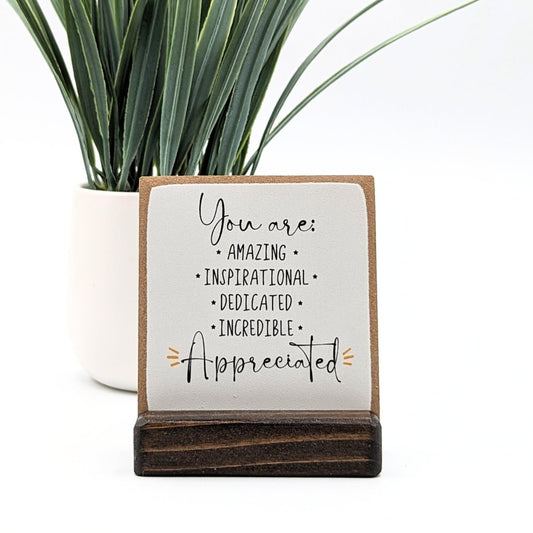 You are:
★ AMAZING ★
★ INSPIRATIONAL ★
★ DEDICATED ★
★ INCREDIBLE ★
Appreciated